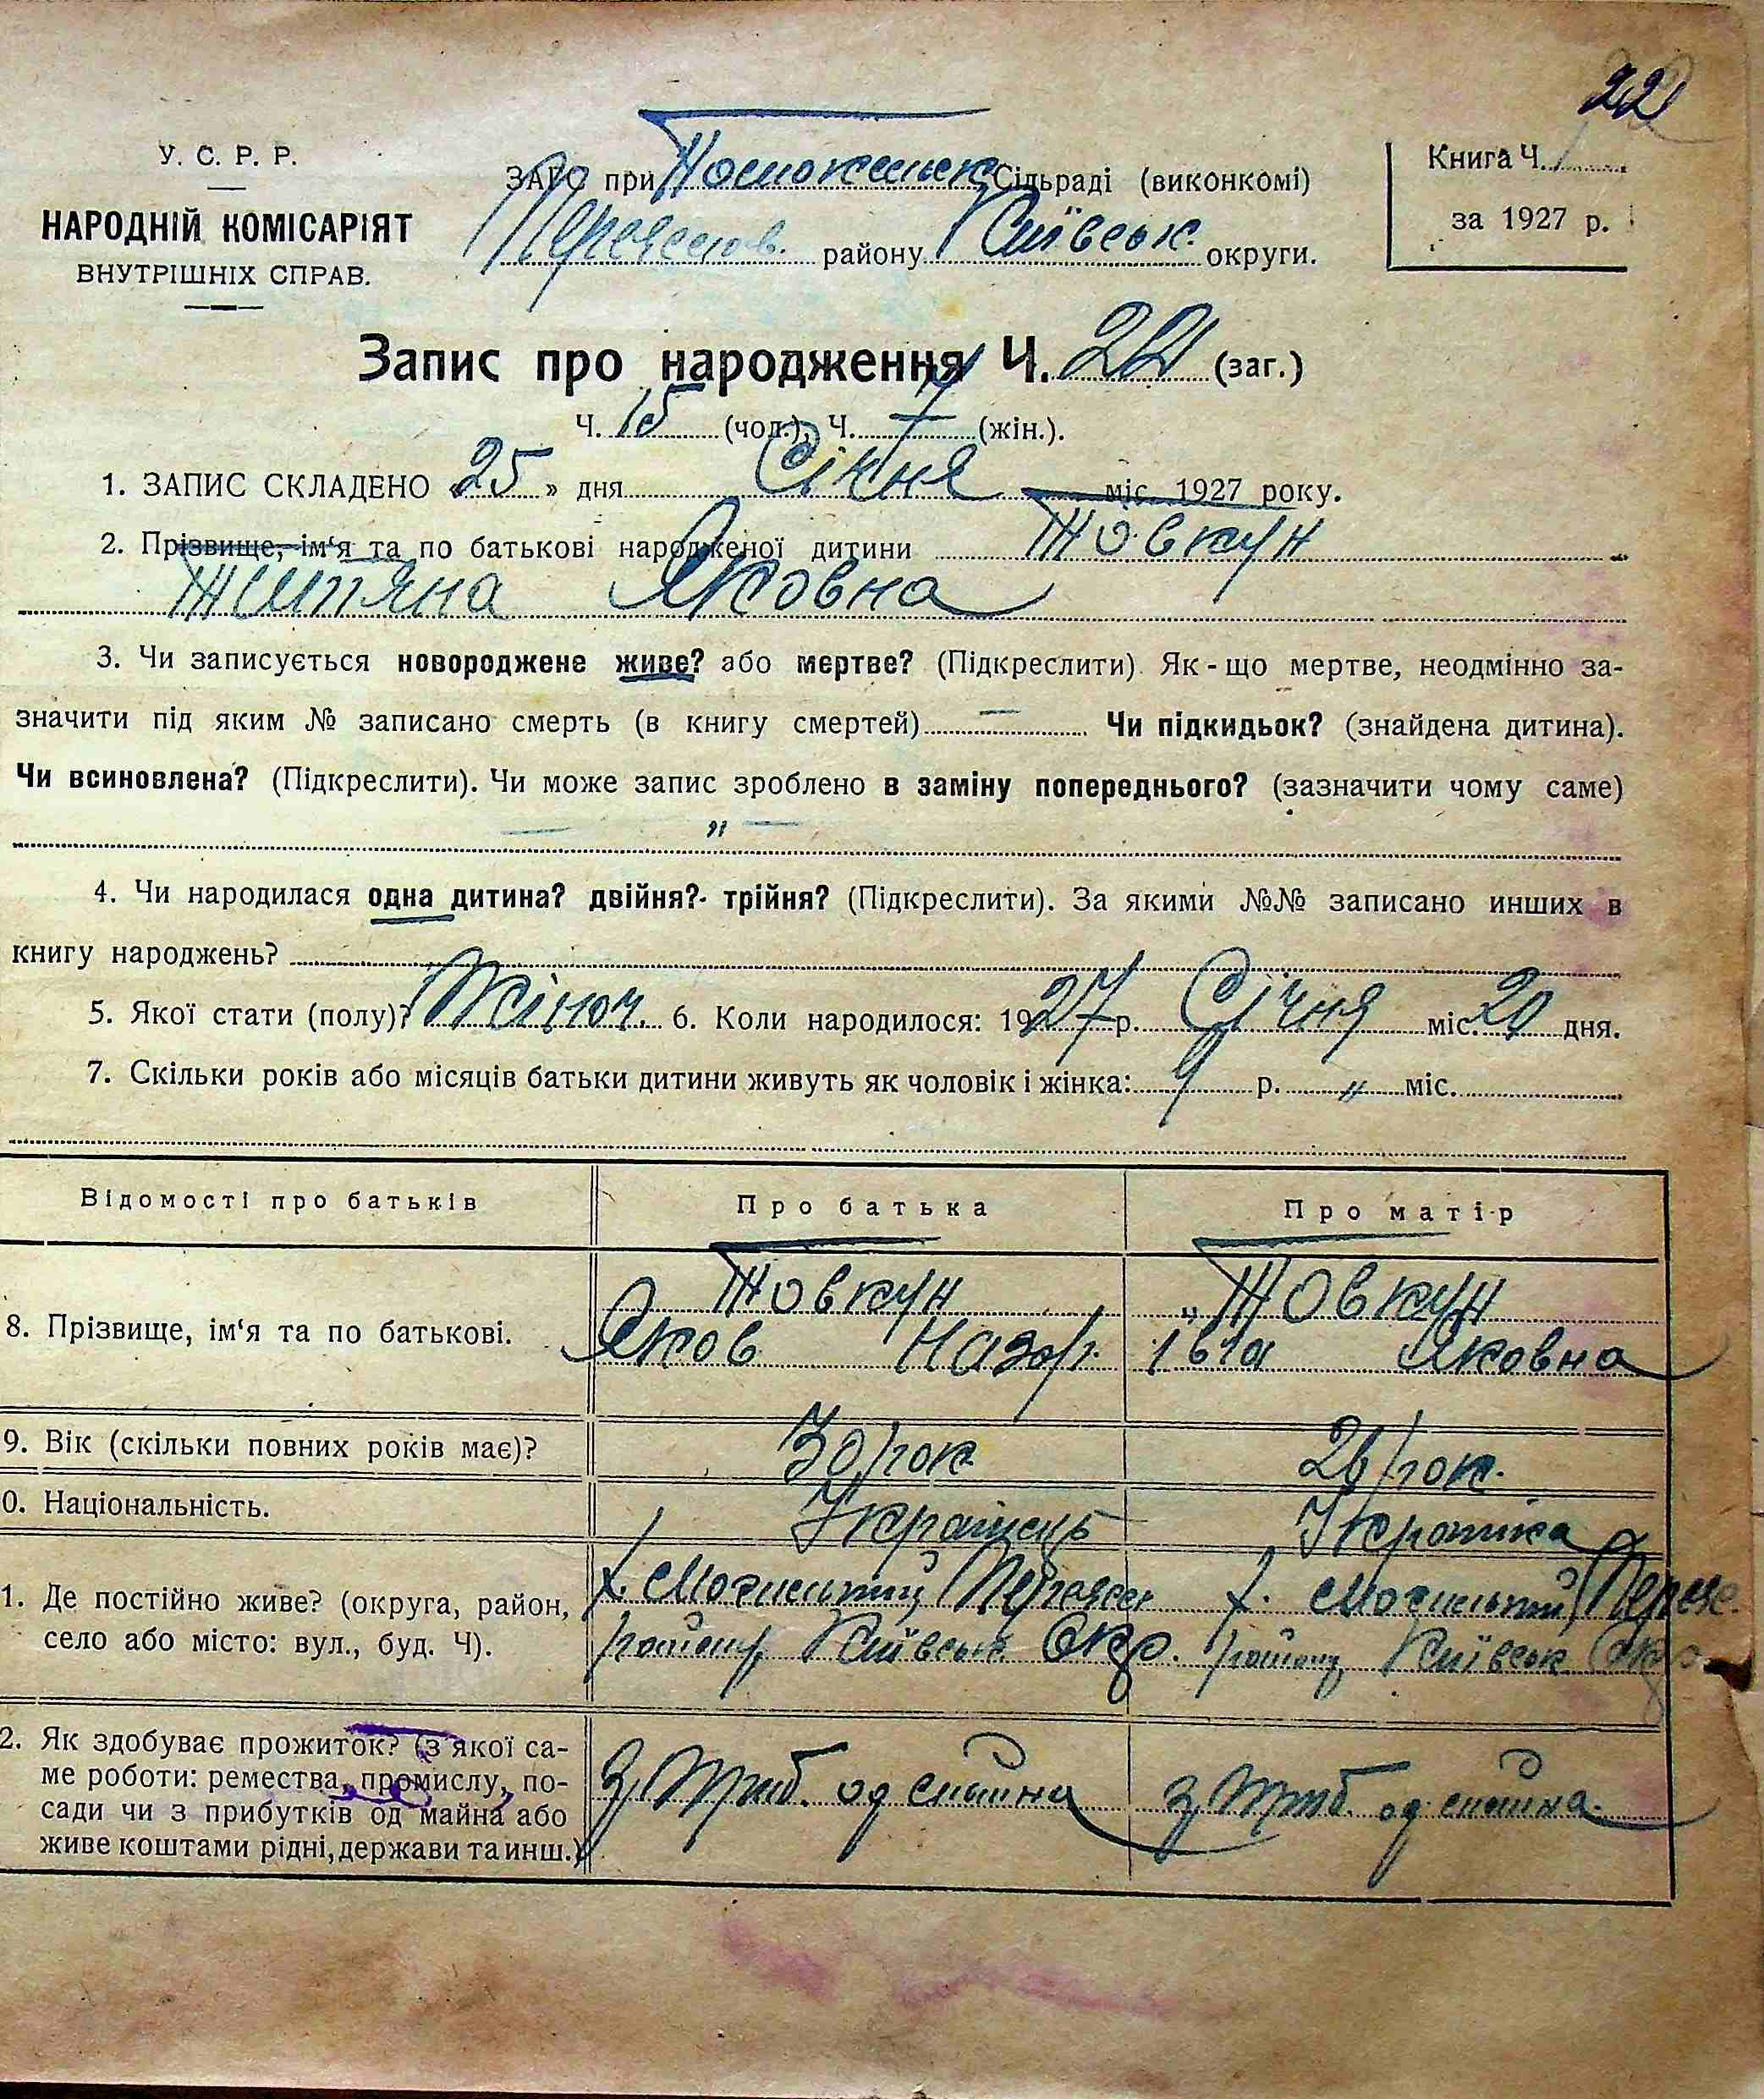 22
У. С. Р. Р.
НАРОДНІЙ КОМІСАРІЯТ
ВНУТРІШНІХ СПРАВ.
ЗАГС при Сільраді (виконкомі)
району Київськ. округи.
Книга Ч. 1
за 1927 р.
Запис про народження Ч. 22 (заг.)
Ч. 15 (чол.), Ч. 7 (жін.).
1. ЗАПИС СКЛАДЕНО «25» дня Січня міс. 1927 року.
2. Прізвище, ім‘я та по батькові народженої дитини Товкун
Титяна Яковна
3. Чи записується новороджене живе? або мертве? (Підкреслити). Як-що мертве, неодмінно за-
значити під яким № записано смерть (в книгу смертей) — Чи підкидьок? (знайдена дитина).
Чи всиновлена? (Підкреслити). Чи може запис зроблено в заміну попереднього? (зазначити чому саме)
— „ —
4. Чи народилася одна дитина? двійня? трійня? (Підкреслити). За якими №№ записано инших в
книгу народжень?
5. Якої стати (полу)? Жіноч. 6. Коли народилося: 1927 р. Січня міс. 20 дня.
7. Скільки років або місяців батьки дитини живуть як чоловік і жінка: 9 р. „ міс.
Відомості про батьків Про батька Про матір
8. Прізвище, ім‘я та по батькові. Товкун „Товкун
Яков Назар. Івга Яковна
9. Вік (скільки повних років має)? 30 рок 26 рок.
0. Національність. Українець Українка
1. Де постійно живе? (округа, район, х. х.
село або місто: вул., буд. Ч). району Київськ Окр. району Київськ Окр
2. Як здобуває прожиток? (з якої са-
ме роботи: ремества, промислу, по-
сади чи з прибутків од майна або
живе коштами рідні, держави та инш.)
З приб. од майна З приб. од майна